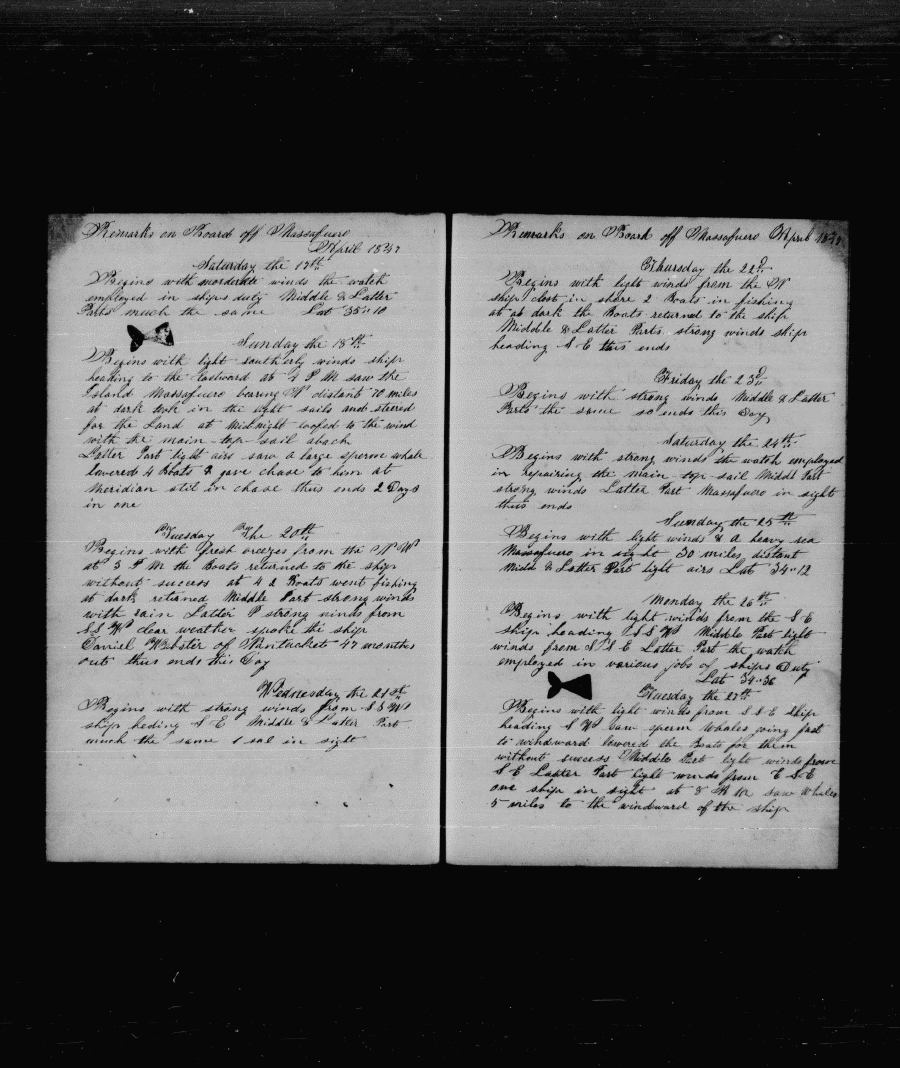 Remarks on Board off Massafuero
April 1847
Saturday the 17th
Begins with morderate winds the watch
employed in ships duty Middle & Latter
Parts much the same Lat 35"10
Sunday the 18th
Begins with light southerly winds ship
heading to the Eastward at 4 P M saw the
Island Massafuero bearing N distant 70 miles
at dark took in the light sails and steered
for the Land at Midnight loofed to the wind
with the main top sail aback
Latter Part light airs saw a large sperm whale
lowered 4 Boats & gave chase to him at
Meridian stil in chase thus ends 2 Days
in one
Tuesday The 20th
Begins with fresh breezes from the N W
at 3 P M the Boats returned to the ship
without success at 4 2 Boats went fishing
at dark retured Middle Part strong winds
with rain Latter P strong winds from
S S W clear weather spoke the ship
Daniel Webster of Nantucket 47 months
out thus ends this Day
Wednesday the 21st
Begins with strong winds from S S W
ship heding S E Middle & Latter Part
much the same 1 sal in sight
Remarks on Board off Massafuero April 1847
Thursday the 22d
Begins with light winds from the N
ship close in shore 2 Boats in fishing
at at dark the Boats returned to the ship
Middle & Latter Parts strong winds ship
heading S E this ends
Friday the 23d
Begins with strong winds Middle & Latter
Parts the same so ends this Day
Saturday the 24th
Begins with strong winds the watch employed
in repairing the main top sail Middl Part
strong winds Latter Part Massafuero in sight
thus ends
Sunday the 25th
Begins with light winds & a heavy sea
Massafuero in sight 30 miles distant
Midd & Latter Part light airs Lat 34"12
Monday the 26th
Begins with light winds from the S E
ship heading S S W Middle Part light
winds from S S E Latter Part the watch
employed in various jobs of ships Duty
Lat 34"36
Tuesday the 27th
Begins with light winds from S S E ship
heading S W saw sperm whales going fast
to windward lowered the Boats for them
without success Middle Part light winds from
S E Latter Part light winds from E S E
one ship in sight at 8 A M saw whales
5 miles to the windward of the ship